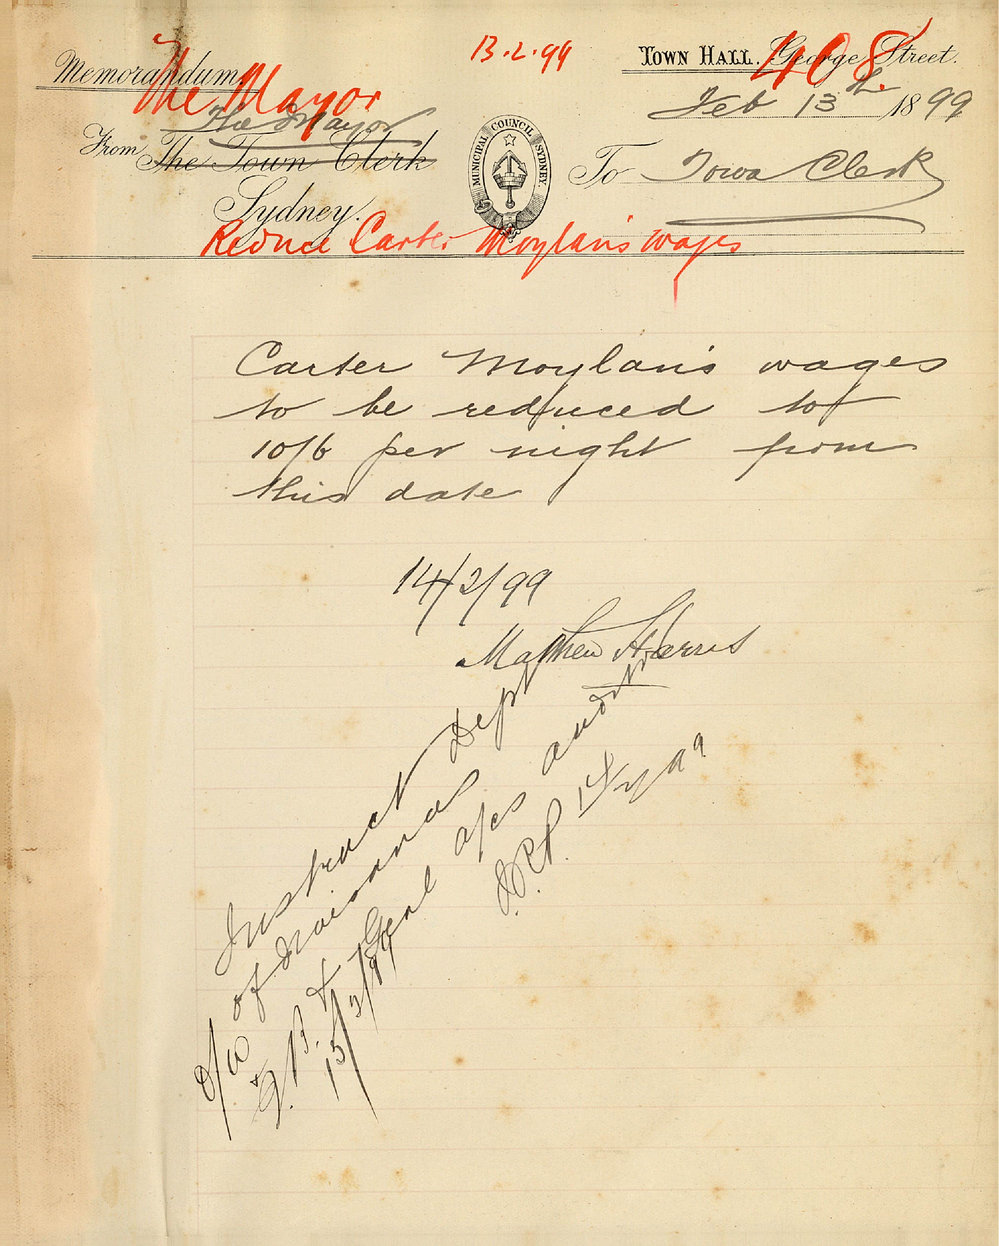 13.2.99
Town Hall. George Street.
408
Memorandum
The Mayor
Feb 13th 1899
The Mayor
From The Town Clerk
MUNICIPAL COUNCIL SYDNEY.
To Town Clerk
Sydney.
Reduce Carter Moylan's wages
Carter Moylan's wages
to be reduced to
10/6 per night from
this date
14/2/99
Mathew Harris
Instruct Dept
of
& Genl a/cs
14/2/99
15/2/99